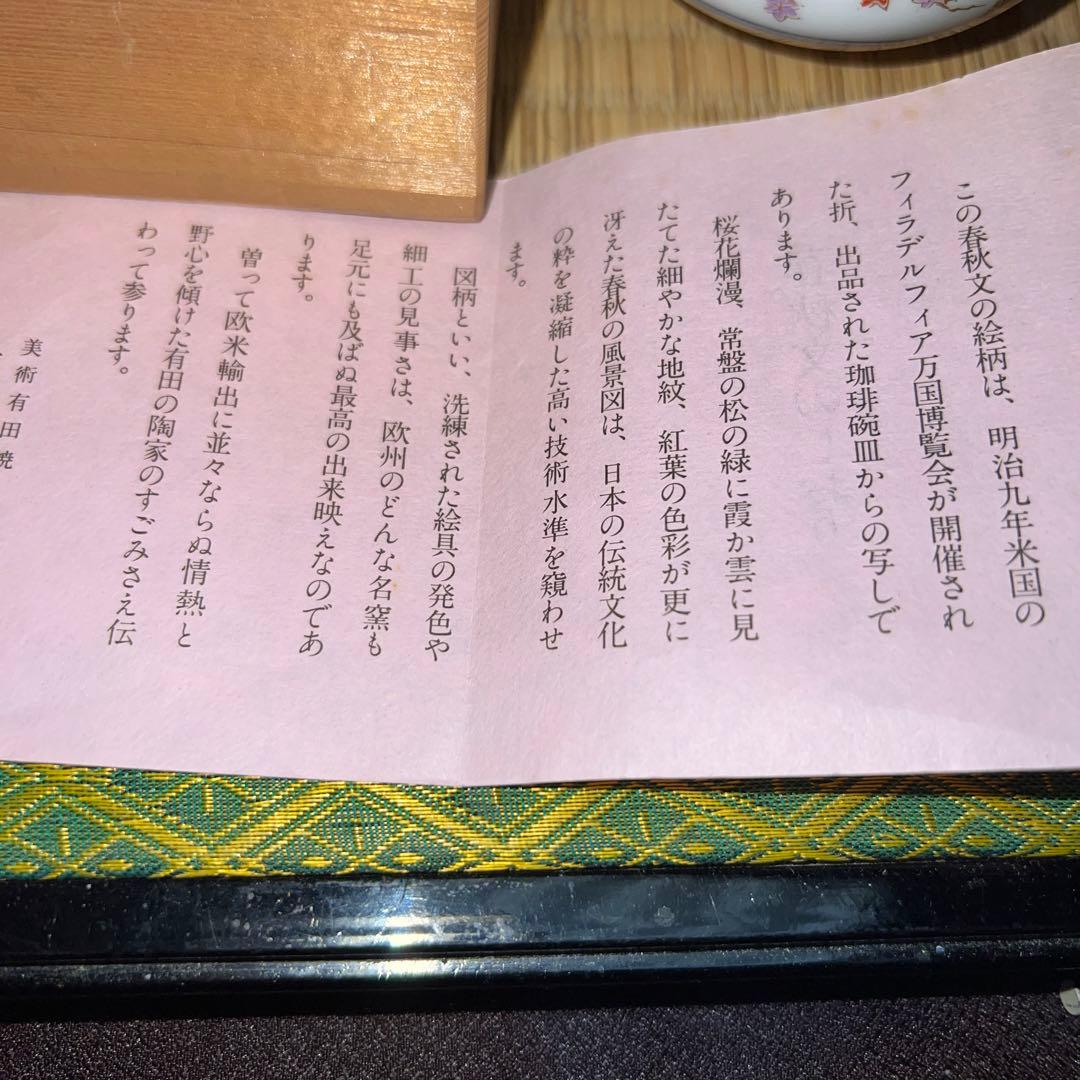 この春秋文の絵柄は、明治九年米国の
フィラデルフィア万国博覧会が開催され
た折、出品された珈琲碗皿からの写しで
あります。
桜花爛漫、常盤の松の緑に霞か雲に見
たてた細やかな地紋、紅葉の色彩が更に
冴えた春秋の風景図は、日本の伝統文化
の粋を凝縮した高い技術水準を窺わせ
ます。
図柄といい、洗練された絵具の発色や
細工の見事さは、欧州のどんな名窯も
足元にも及ばぬ最高の出来映えなのであ
ります。
曽って欧米輸出に並々ならぬ情熱と
野心を傾けた有田の陶家のすごみさえ伝
わって参ります。
美術有田暁